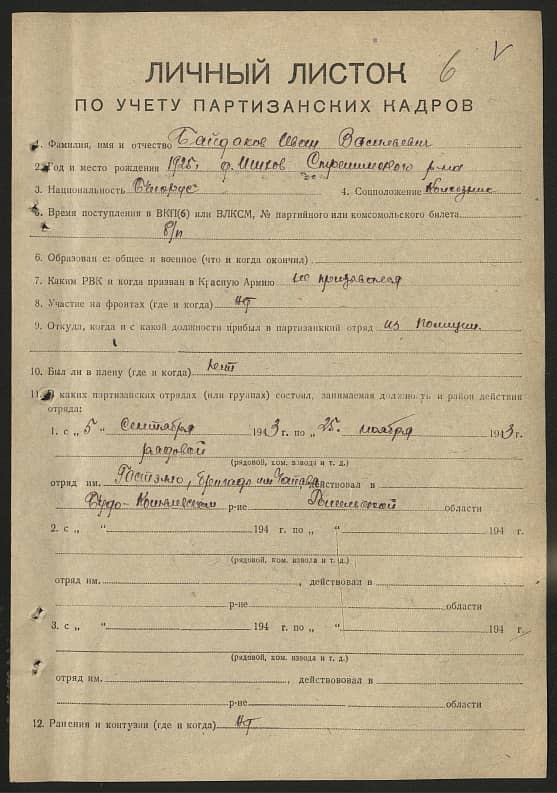 6 V
ЛИЧНЫЙ ЛИСТОК
ПО УЧЕТУ ПАРТИЗАНСКИХ КАДРОВ
1. Фамилия, имя и отчество Байдаков Иван Васильевич
2. Год и место рождения 1925 г. д. Стрешинского р-на
3. Национальность Белорус 4. Соцположение Колхозник
5. Время поступления в ВКП(б) или ВЛКСМ, № партийного или комсомольского билета
б/п
6. Образован е: общее и военное (что и когда окончил)
7. Каким РВК и когда призван в Красную Армию не призывался
8. Участие на фронтах (где и когда) нт
9. Откуда, когда и с какой должности прибыл в партизанкий отряд из полиции
10. Был ли в плену (где и когда) нет
11. В каких партизанских отрядах (или группах) состоял, занимаемая должность и район действия
отряда:
1. с „ 5 “ сентября 1943 г. по „ 25 “ ноября 1943 г.
рядовой
(рядовой, ком. взвода и т. д.)
отряд им. бригада им. Чапаева, действовал в
Буда-Кошелевском р-не Гомельской области
2. с „ “ 194 г. по „ “ 194 г.
(рядовой, ком. взвода и т. д.)
отряд им. , действовал в
р-не области
3. с „ “ 194 г. по „ “ 194 г.
(рядовой, ком. взвода и т. д.)
отряд им. , действововал в
р-не области
12. Ранения и контузии (где и когда) нт